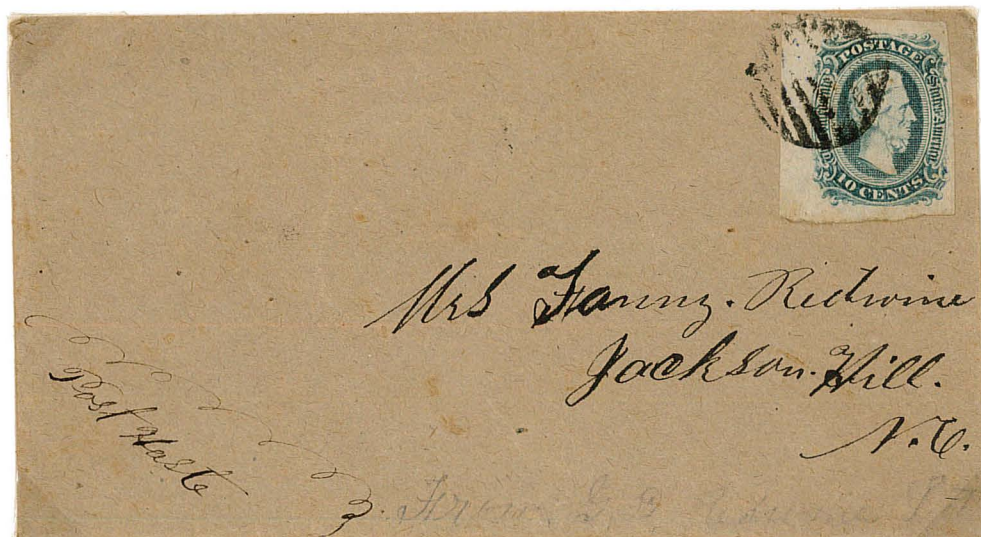 POSTAGE
10 CENTS
Mrs Fanny. Redwine
Jackson. Hill.
N. C.
Post Haste
From